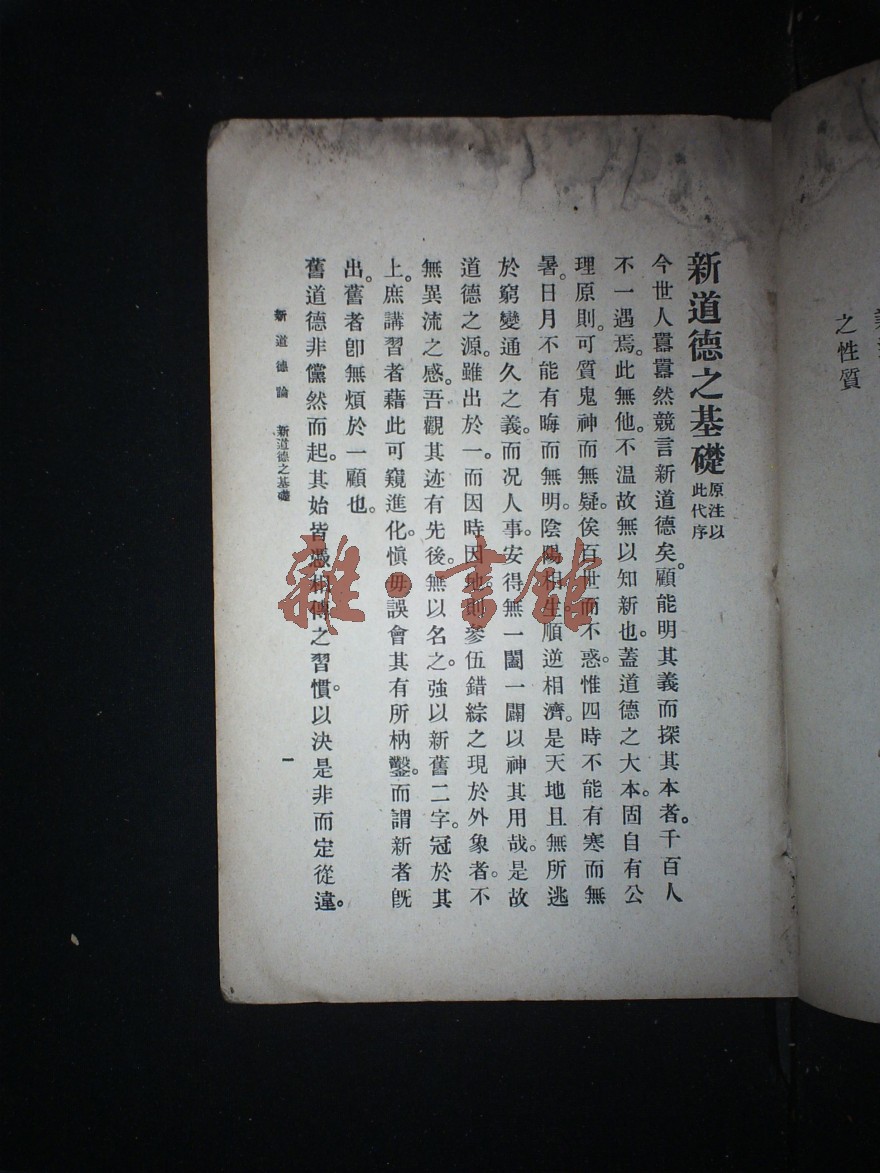 之性質
新道德之基礎原注以此代序
今世人囂囂然競言新道德矣。顧能明其義而探其本者。千百人
不一遇焉。此無他。不温故無以知新也。蓋道德之大本。固自有公
理原則。可質鬼神而無疑。俟百世而不惑。惟四時不能有寒而無
暑。日月不能有晦而無明。陰陽相生。順逆相濟。是天地且無所逃
於窮變通久之義。而况人事。安得無一闔一闢以神其用哉。是故
道德之源。雖出於一。而因時因地。則參伍錯綜之現於外象者。不
無異流之感。吾觀其迹有先後。無以名之。強以新舊二字。冠於其
上。庶講習者藉此可窺進化。愼毋誤會其有所枘鑿。而謂新者旣
出。舊者卽無煩於一顧也。
舊道德非儻然而起。其始皆憑相傳之習慣。以決是非而定從違。
新道德論 新道德之基礎 一
雜·書館